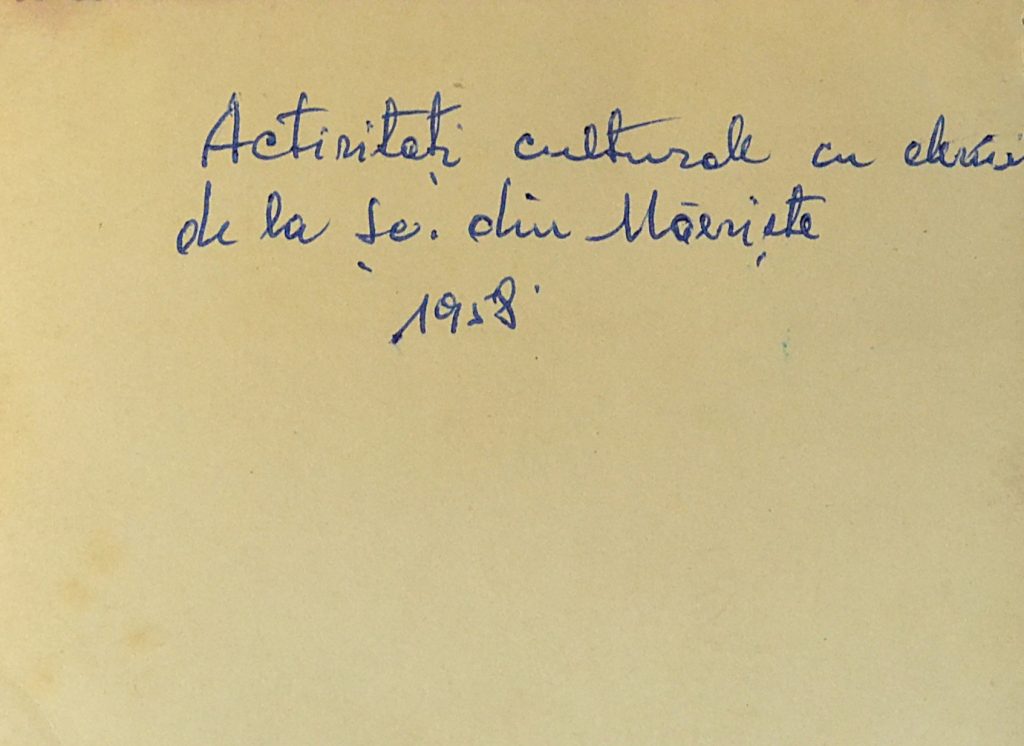 Activități culturale cu elevii
de la Șc. din Măeriște
1958